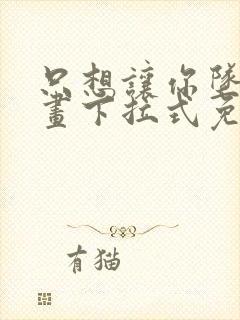 只想讓你墜
畫下拉式免
有猫